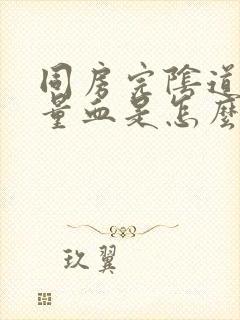 同房完陰道
量血是怎麼
玖翼